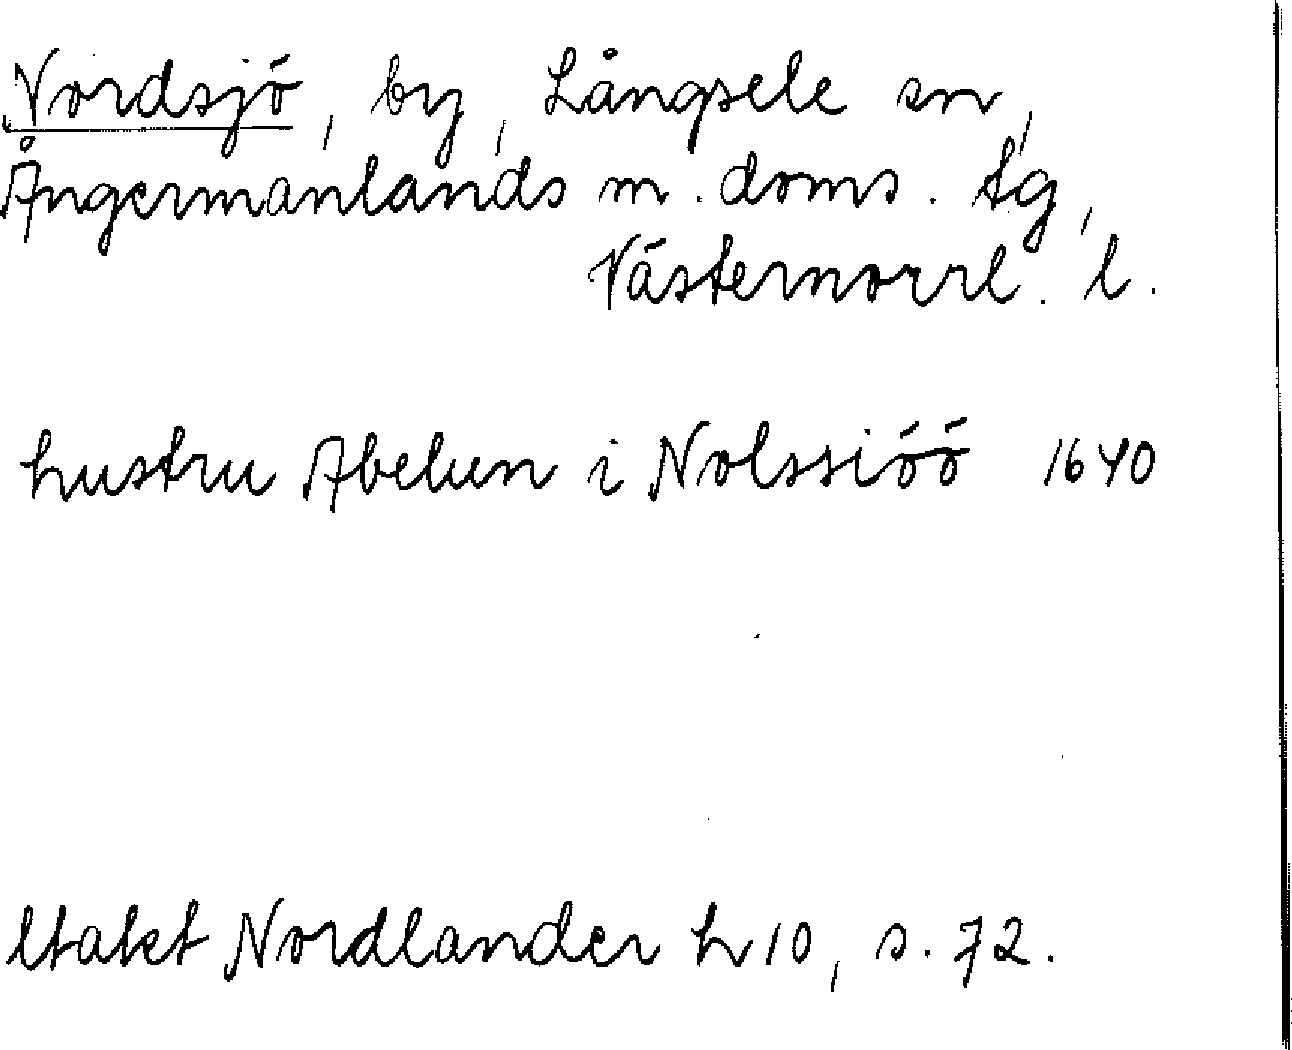 Nordsjö, by, Långsele sn,
Ångermanlands m. doms. tg,
Västernorrl. l.
hustru Abelun i Nolssiöö 1640
ltakt Nordlander h 10, s. 72.